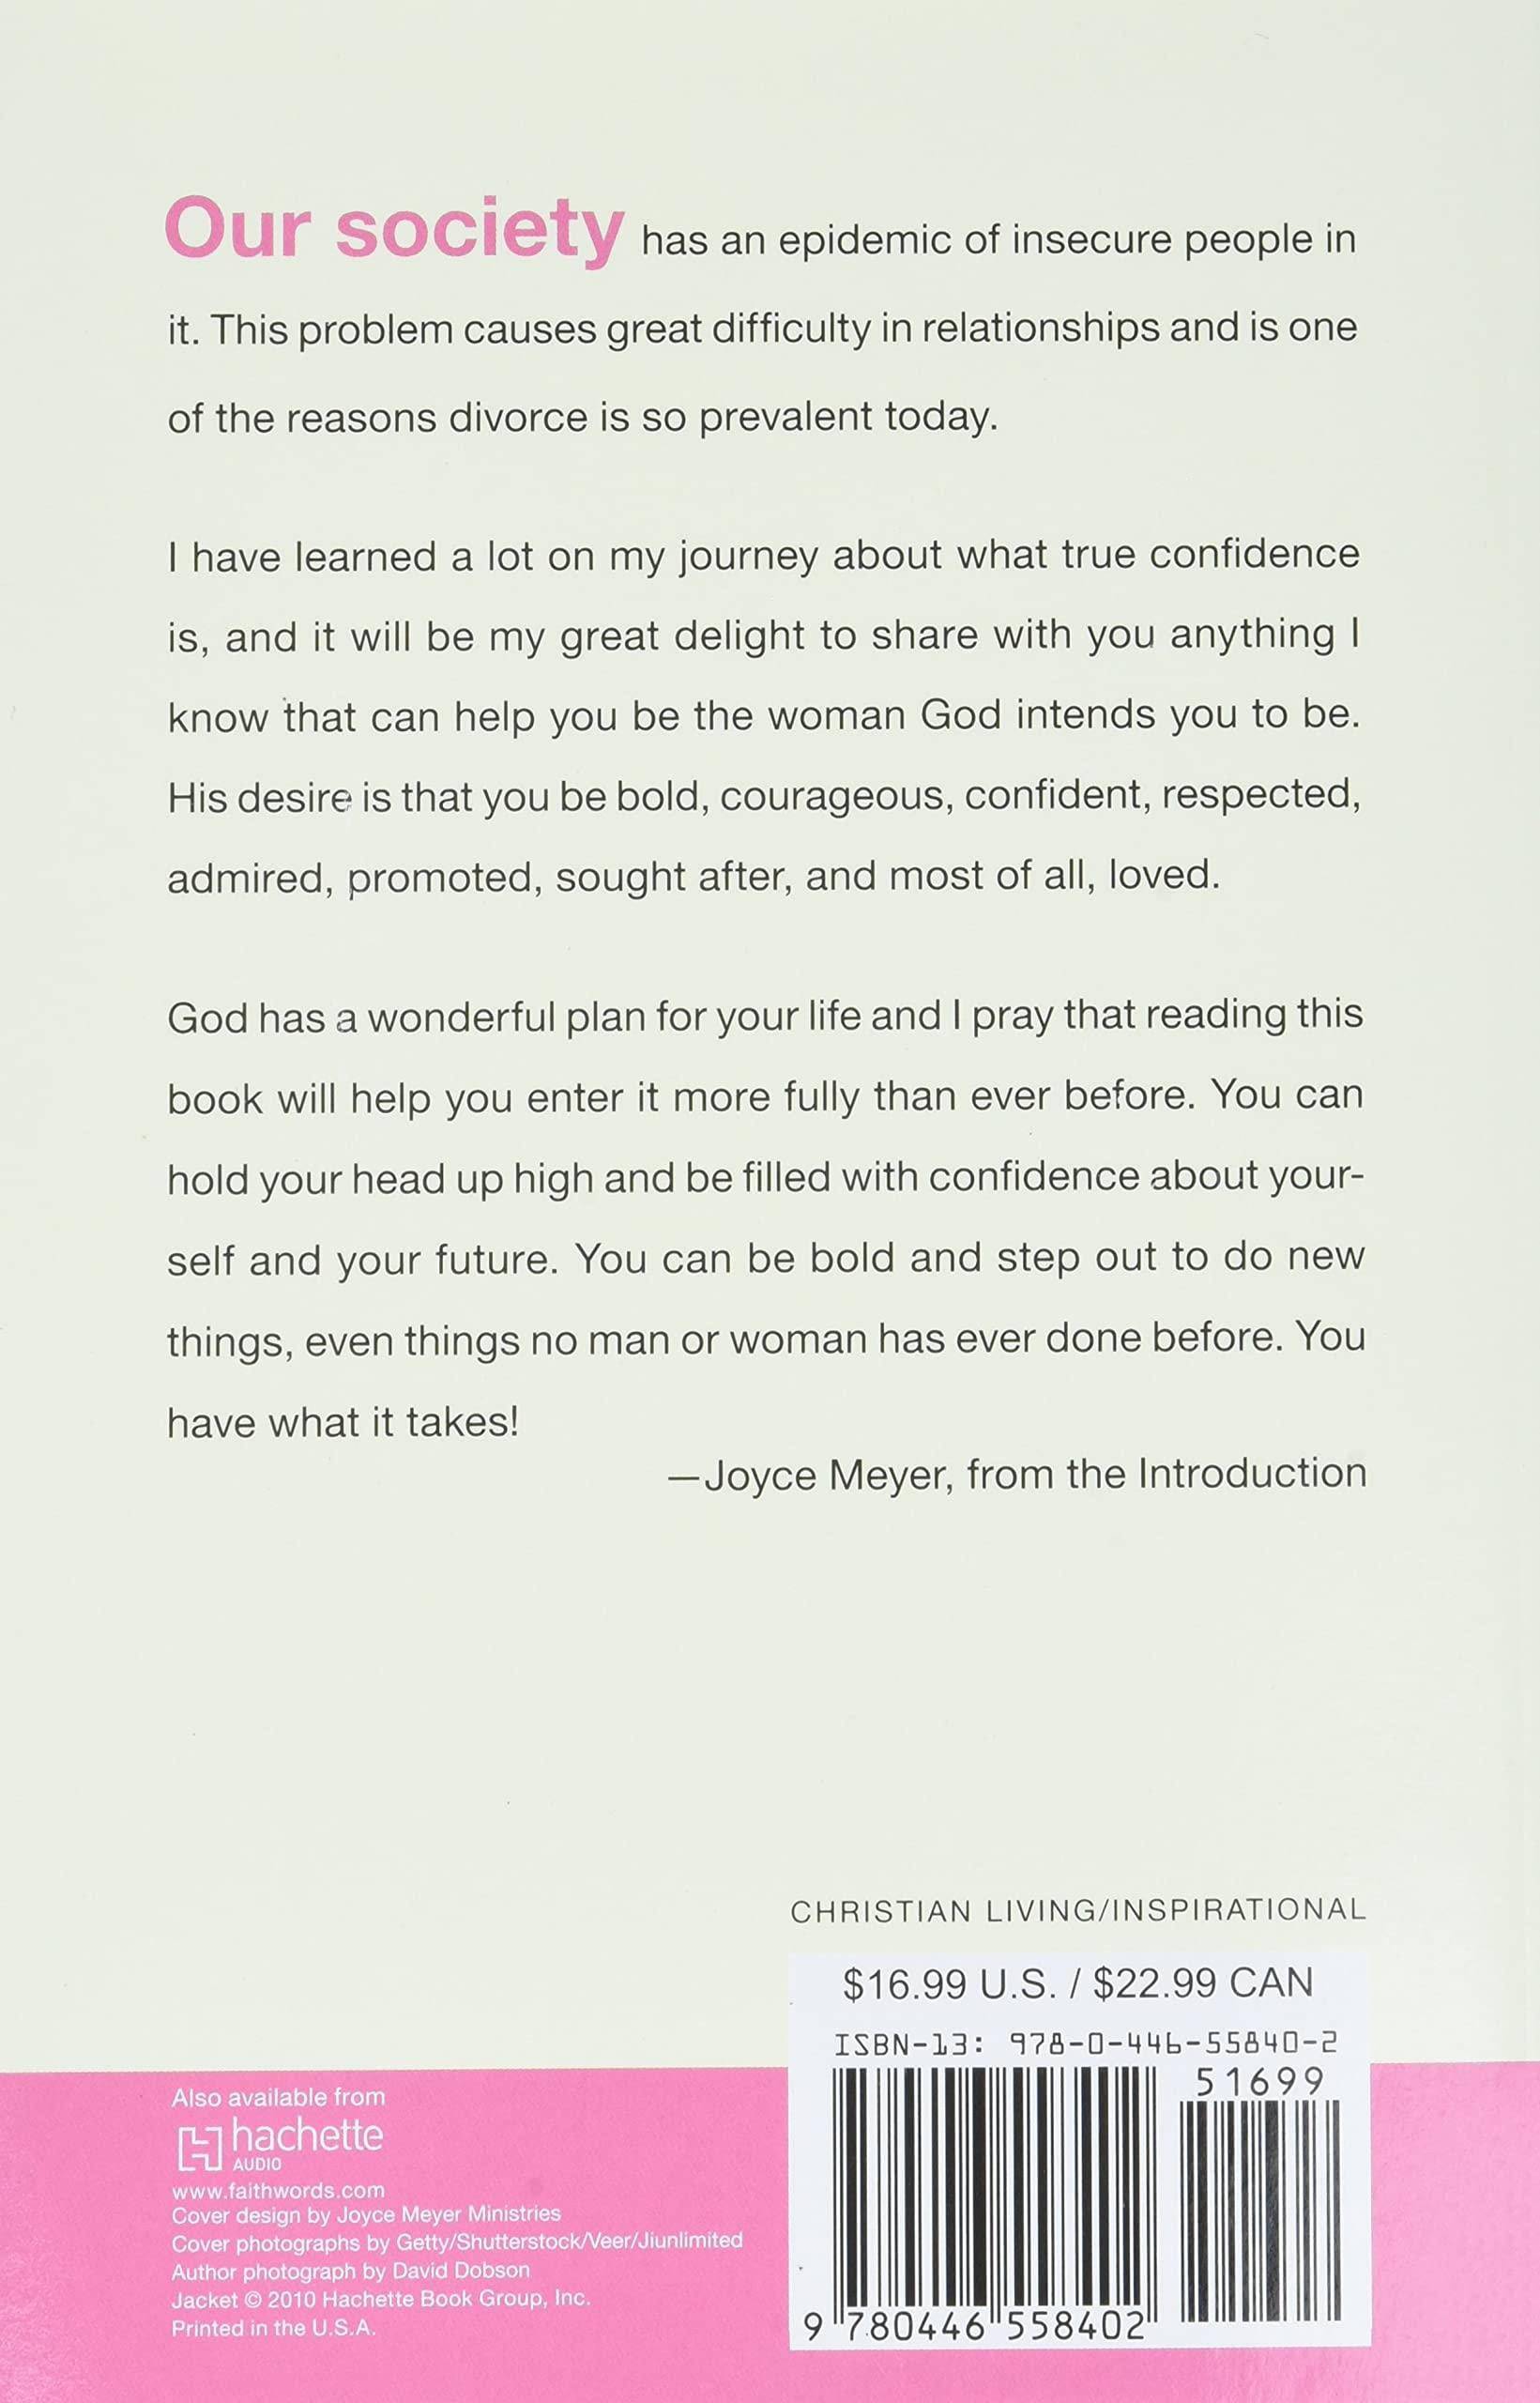 Our society has an epidemic of insecure people in
it. This problem causes great difficulty in relationships and is one
of the reasons divorce is so prevalent today.
I have learned a lot on my journey about what true confidence
is, and it will be my great delight to share with you anything I
know that can help you be the woman God intends you to be.
His desire is that you be bold, courageous, confident, respected,
admired, promoted, sought after, and most of all, loved.
God has a wonderful plan for your life and I pray that reading this
book will help you enter it more fully than ever before. You can
hold your head up high and be filled with confidence about your-
self and your future. You can be bold and step out to do new
things, even things no man or woman has ever done before. You
have what it takes!
—Joyce Meyer, from the Introduction
CHRISTIAN LIVING/INSPIRATIONAL
$16.99 U.S. / $22.99 CAN
ISBN-13: 978-0-446-55840-2
51699
9 780446 558402
Also available from
hachette
AUDIO
www.faithwords.com
Cover design by Joyce Meyer Ministries
Cover photographs by Getty/Shutterstock/Veer/Jiunlimited
Author photograph by David Dobson
Jacket © 2010 Hachette Book Group, Inc.
Printed in the U.S.A.